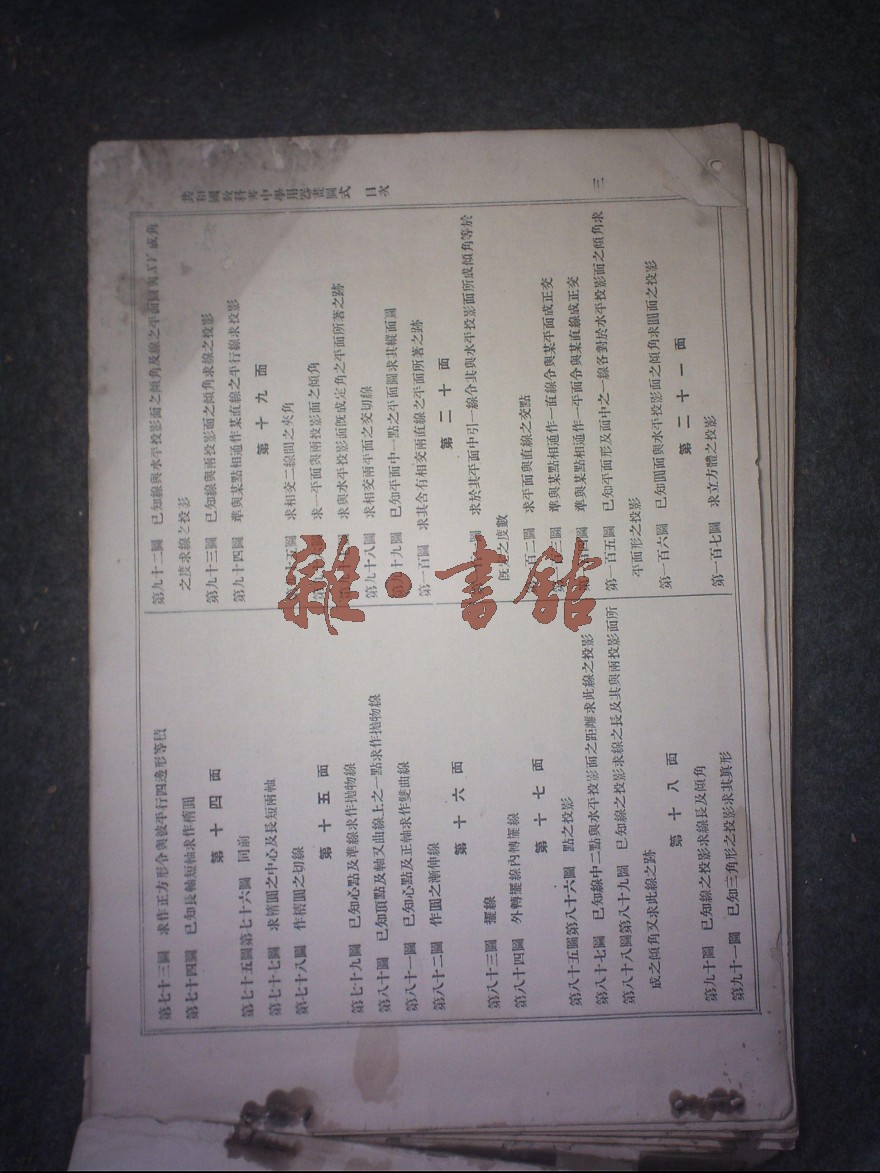 第七十三圖 求作正方形令與彼平行四邊形等積
第七十四圖 已知長軸短軸求作橢圓
第十四面
第七十五圖第七十六圖 同前
第七十七圖 求橢圓之中心及長短兩軸
第七十八圖 作橢圓之切線
第十五面
第七十九圖 已知心點及準線求作拋物線
第八十圖 已知頂點及軸又曲線上之一點求作拋物線
第八十一圖 已知心點及正軸求作雙曲線
第八十二圖 作圓之漸伸線
第十六面
第八十三圖 擺線
第八十四圖 外轉擺線內轉擺線
第十七面
第八十五圖第八十六圖 點之投影
第八十七圖 已知線中二點與水平投影面之距離求此線之投影
第八十八圖第八十九圖 已知線之投影求線之長及其與兩投影面所
成之傾角又求此線之跡
第十八面
第九十圖 已知線之投影求線長及傾角
第九十一圖 已知三角形之投影求其眞形
第九十二圖 已知線與水平投影面之傾角及線之平面圖與XY成角
之度求線之投影
第九十三圖 已知線與兩投影面之傾角求線之投影
第九十四圖 準與某點相通作某直線之平行線求投影
第十九面
十五圖 求相交二線間之夾角
求一平面與兩投影面之傾角
求與水平投影面旣成定角之平面所著之跡
第九十八圖 求相交兩平面之交切線
十九圖 已知平面中一點之平面圖求其縱面圖
第一百圖 求其含有相交兩直線之平面所著之跡
第二十面
圖 求於其平面中引一線令其與水平投影面所成傾角等於
旣之度數
百二圖 求平面與直線之交點
三圖 準與某點相通作一直線令與某平面成正交
圖 準與某點相通作一平面令與某直線成正交
第一百五圖 已知平面形及面中之一線各對於水平投影面之傾角求
平面形之投影
第一百六圖 已知圓面與水平投影面之傾角求圓面之投影
第二十一面
第一百七圖 求立方體之投影
共和國教科書中學用器畫圖式 目次
三
書館